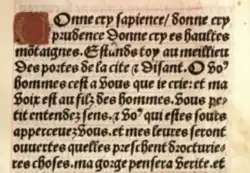 Donne cry sapience/ donne cry
prudence Donne cry es haultes
mõtaignes. Estands toy au meillieu
Des portes de la cite & Disant. O Vo⁹
hommes cest a Vous que ie crie: et ma
Voix est au filz des hommes. Vous pe
titz entendez sens. & Vo⁹ qui estes sours
apperceuez Vous. et mes leures seront
ouuertes quelles preschent droicturie
res choses. ma gorge pensera Verite. et